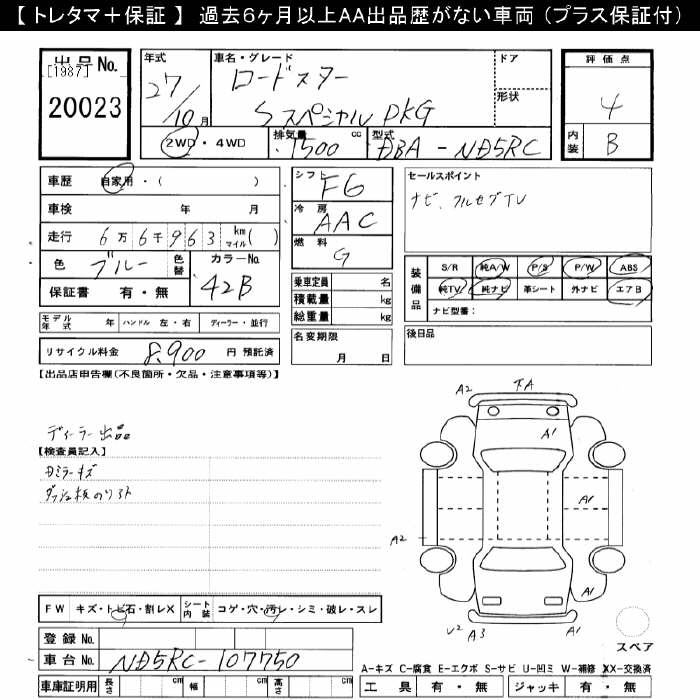 【 トレタマ＋保証 】 過去6ヶ月以上AA出品歴がない車両 （プラス保証付）
出品No.
[1987]
20023
年式
27/10月
車名・グレード
ロードスター
Sスペシャル PKG
ドア
形状
評価点
4
内装
B
2WD・4WD
排気量
1500 cc
型式
DBA-ND5RC
車歴 自家用・（ ）
車検 年 月
走行 6万6千963 km マイル( )
色 ブルー 色替
カラーNo. 42B
保証書 有・無
シフト F6
冷房 AAC
燃料 G
乗車定員 名
積載量 kg
総重量 kg
セールスポイント
ナビ、フルセグTV
装備品
S/R 純A/W P/S P/W ABS
純TV 純ナビ 革シート 外ナビ エアB
ナビ型番：
モデル年式 年 ハンドル 左・右 ディーラー・並行
名変期限
月 日
後日品
リサイクル料金 8,900 円 預託済
【出品店申告欄(不良個所・欠品・注意事項等)】
ディーラー出品
【検査員記入】
ダッシュ板のリフト
A2 下A
A1
A1
A2
A1
V2 A3 A1
スペア
FW キズ・トビ石・割レX
シート内装 コゲ・穴・汚レ・シミ・破レ・スレ
登録No.
車台No. ND5RC-107750
車庫証明用 長さ cm 幅 cm 高さ cm
A-キズ C-腐食 E-エクボ S-サビ U-凹ミ W-補修 XX-交換済
工具 有・無 ジャッキ 有・無